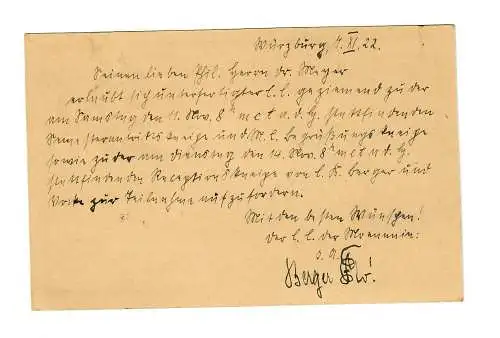 Würzburg, 7. XI. 22.
Seinen lieben Phil. Herrn Dr. Meyer
erlaubt sich unterfertigter C. C. geziemend zu der
am Samstag den 11. Nov. 8 h m c t a. d. H. stattfindenden
Semesterantrittskneipe und A. C. Begrüßungskneipe
sowie zu der am Dienstag den 14. Nov. 8 h m c t a. d. H.
stattfindenden Receptionskneipe von C. K. Berger und
zur Teilnahme aufzufordern.
Mit den besten Wünschen!
Der C. C. der Moenania:
Berger